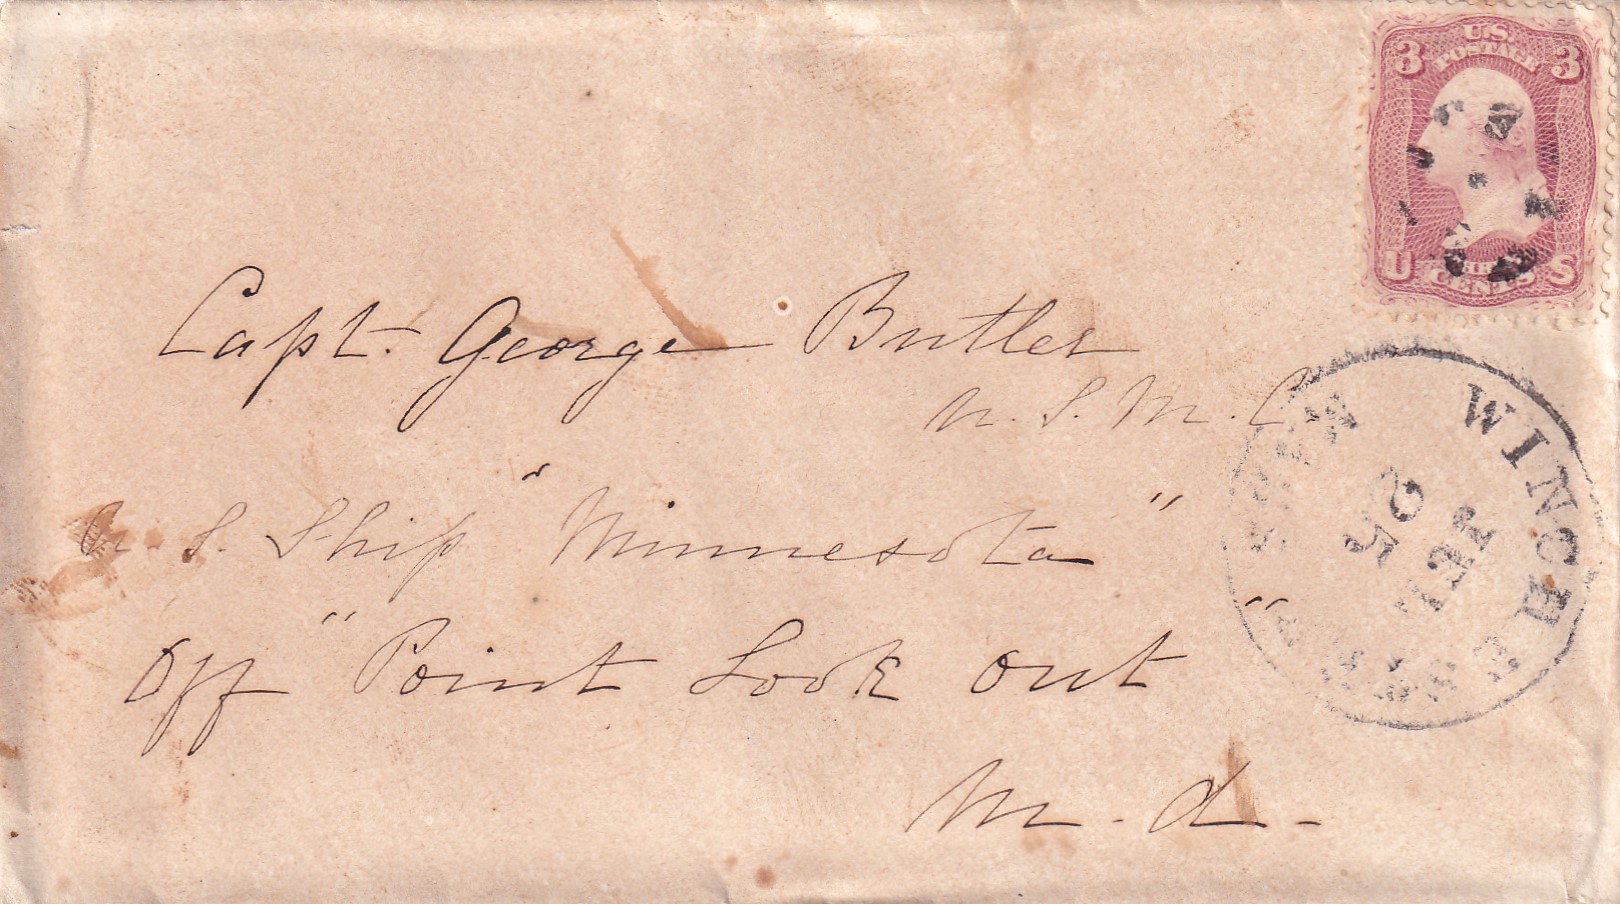 U.S.
POSTAGE
3 3
U S
CENTS
Capt. George Butler
U. S. M. C.
U. S. Ship "Minnesota"
Off "Point Look out"
M. d.
WINCHESTER
MASS
25